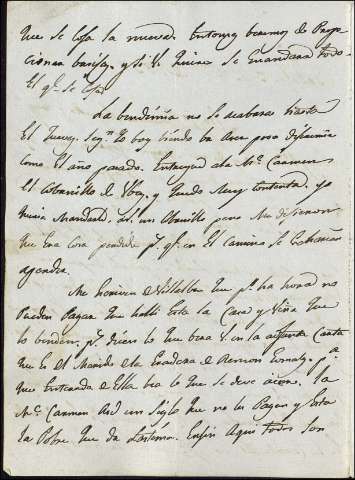 que se coja la nueva. entonces beremos de Prop
cionar basijas, y si V. quiere se mandara todo
el qe. se coja
La bendimia no se acabara hasta
el Jueves. segn. lo boy biendo ba aver poca diferencia
como el año pasado. Entregué a la Ma. Carmen
el cobanillo de Ubas, y quedó muy contenta. yo
queria mandar un cobanillo pero me dijeron
que era cosa perdida pr. qe. en el camino se hechan
a perder.
Me escriven de Villalba que pr. ha hora no
pueden pagar que halli esta la Casa y Viña que
lo benden, pr. dicen lo que bera V. en la adjunta Carta
que es el Marido de la eradera de Ramon
que enterado de ella bea lo que se deve acer. La
Ma. Carmen ace un siglo que no les pagan y esta
la Pobre que da lastima. Enfin Aqui todos son